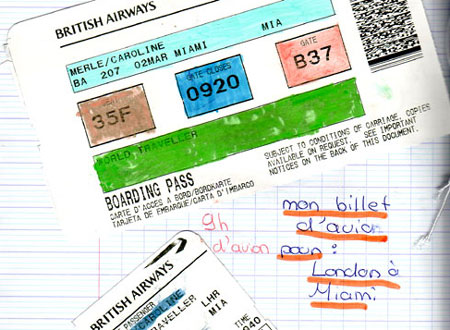 BRITISH AIRWAYS
MERLE/CAROLINE
BA 207 02MAR MIAMI MIA
SEAT
35F
GATE CLOSES
0920
GATE
B37
WORLD TRAVELLER
BOARDING PASS
CARTE D'ACCES A BORD/BORDKARTE
TARJETA DE EMBARQUE/CARTA D'IMBARCO
SUBJECT TO CONDITIONS OF CARRIAGE, COPIES
AVAILABLE ON REQUEST. SEE IMPORTANT
NOTICES ON THE BACK OF THIS DOCUMENT.
9h
d'avion
mon billet
d'avion
pour :
London à
Miami
BRITISH AIRWAYS
PASSENGER
CAROLINE
TRAVELLER
LHR
MIA